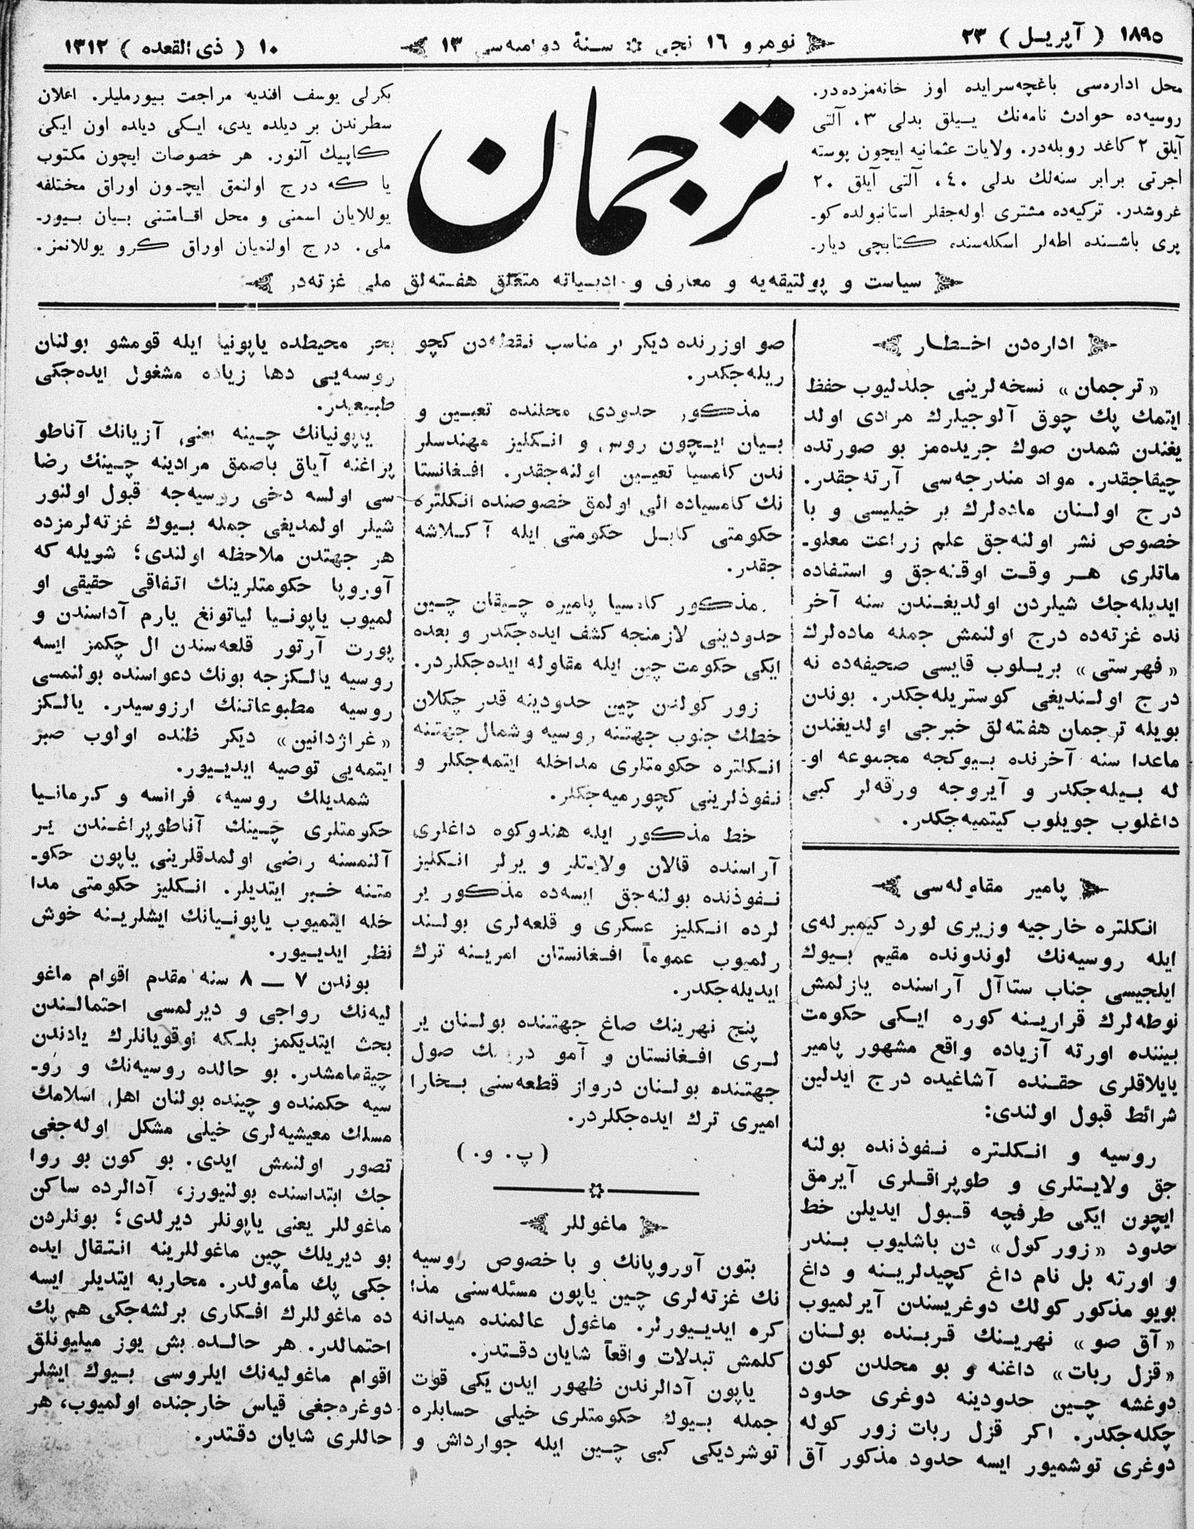 ١٨٩٥ ( آپريل ) ٢٣
نومرو ١٦ نجى ۞ سنۀ دواميه‌سى ١٣
١٠ ( ذى القعده ) ١٣١٢
محل اداره‌سى باغچه‌سرايده اوز خانه‌مزده‌در.
روسيه‌ده حوادث نامه‌نك ييلق بدلى ٣، آلتى
آيلق ٢ كاغد روبله‌در. ولايات عثمانيه ايچون پوسته
اجرتى برابر سنه‌لك بدلى ٤٠، آلتى آيلق ٢٠
غروشدر. تركيه‌ده مشترى اوله‌جقلر استانبولده كو-
پرى باشنده اطه‌لر اسكله‌سنده كتابچى ديار-
ترجمان
بكرلى يوسف افنديه مراجعت بيورمليلر. اعلان
سطرندن بر ديلده يدى، ايكى ديلده اون ايكى
كاپيك آلنور. هر خصوصات ايچون مكتوب
يا كه درج اولنمق ايچون اوراق مختلفه
يوللايان اسمنى و محل اقامتنى بيان بيور-
ملى. درج اولنميان اوراق كرو يوللانمز.
سياست و پولتيقه‌يه و معارف و ادبياته متعلق هفته‌لق ملى غزته‌در
اداره‌دن اخطار
«ترجمان» نسخه‌لرينى جلدليوب حفظ
ايتمك پك چوق آلوجيلرك مرادى اولد
يغندن شمدن صوك جريده‌مز بو صورتده
چيقاجقدر. مواد مندرجه‌سى آرته‌جقدر.
درج اولنان ماده‌لرك بر خيليسى و با
خصوص نشر اولنه‌جق علم زراعت معلو-
ماتلرى هر وقت اوقنه‌جق و استفاده
ايديله‌جك شيلردن اولديغندن سنه آخر
نده غزته‌ده درج اولنمش جمله ماده‌لرك
«فهرستى» بريلوب قايسى صحيفه‌ده نه
درج اولنديغى كوستريله‌جكدر. بوندن
بويله ترجمان هفته‌لق خبرجى اولديغندن
ماعدا سنه آخرنده بيوكجه مجموعه او-
له بيله‌جكدر و آيروجه ورقه‌لر كبى
داغلوب جويلوب كيتميه‌جكدر.
پامير مقاوله‌سى
انكلتره خارجيه وزيرى لورد كيمبرله‌ى
ايله روسيه‌نك لوندونده مقيم بيوك
ايلجيسى جناب ستاآل آراسنده يازلمش
نوطه‌لرك قرارينه كوره ايكى حكومت
بيننده اورته آزياده واقع مشهور پامير
يايلاقلرى حقنده آشاغيده درج ايدلين
شرائط قبول اولندى:
روسيه و انكلتره نفوذنده بولنه
جق ولايتلرى و طوپراقلرى آيرمق
ايچون ايكى طرفچه قبول ايديلن خط
حدود «زور كول» دن باشليوب بندر
و اورته بل نام داغ كچيدلرينه و داغ
بويو مذكور كولك دوغريسندن آيرلميوب
«آق صو» نهرينك قربنده بولنان
«قزل ربات» داغنه و بو محلدن كون
دوغشه چين حدودينه دوغرى حدود
چكله‌جكدر. اكر قزل ربات زور كوله
دوغرى توشميور ايسه حدود مذكور آق
صو اوزرنده ديكر بر مناسب نقطه‌دن كچو
ريله‌جكدر.
مذكور حدودى محلنده تعيين و
بيان ايچون روس و انكليز مهندسلر
ندن كامسيا تعيين اولنه‌جقدر. افغانستا
نك كامسياده الى اولمق خصوصنده انكلتره
حكومتى كابل حكومتى ايله آكلاشه
جقدر.
مذكور كامسيا پاميره چيقان چين
حدودينى لازمنجه كشف ايده‌جكدر و بعده
ايكى حكومت چين ايله مقاوله ايده‌جكلردر.
زور كولدن چين حدودينه قدر چكلان
خطك جنوب جهتنه روسيه وشمال جهتنه
انكلتره حكومتلرى مداخله ايتمه‌جكلر و
نفوذلرينى كچورميه‌جكلر.
خط مذكور ايله هندوكوه داغلرى
آراسنده قالان ولايتلر و يرلر انكليز
نفوذنده بولنه‌جق ايسه‌ده مذكور ير
لرده انكليز عسكرى و قلعه‌لرى بولند
رلميوب عموماً افغانستان امرينه ترك
ايديله‌جكدر.
پنج نهرينك صاغ جهتنده بولنان ير
لرى افغانستان و آمو دريانك صول
جهتنده بولنان درواز قطعه‌سنى بخارا
اميرى ترك ايده‌جكلردر.
( پ. و. )
ماغوللر
بتون آوروپانك و با خصوص روسيه
نك غزته‌لرى چين ياپون مسئله‌سنى مذا
كره ايديييورلر. ماغول عالمنده ميدانه
كلمش تبدلات واقعاً شايان دقتدر.
ياپون آدالرندن ظهور ايدن يكى قوت
جمله بيوك حكومتلرى خيلى حسابلره
توشرديكى كبى چين ايله جوارداش و
بحر محيطده ياپونيا ايله قومشو بولنان
روسيه‌يى دها زياده مشغول ايده‌جكى
طبيعيدر.
ياپونيانك چينه يعنى آزيانك آناطو
پراغنه آياق باصمق مرادينه چينك رضا
سى اولسه دخى روسيه‌جه قبول اولنور
شيلر اولمديغى جمله بيوك غزته‌لرمزده
هر جهتدن ملاحظه اولندى؛ شويله كه
آوروپا حكومتلرينك اتفاقى حقيقى او
لميوب ياپونيا لياتونغ يارم آداسندن و
پورت آرتور قلعه‌سندن ال چكمز ايسه
روسيه يالكزجه بونك دعواسنده بولنمسى
روسيه مطبوعاتنك ارزوسيدر. يالكز
«غراژدانين» ديكر ظنده اولوب صبر
ايتمه‌يى توصيه ايدييور.
شمديلك روسيه، فرانسه و كرمانيا
حكومتلرى چينك آناطوپراغندن ير
آلنمسنه راضى اولمدقلرينى ياپون حكو-
متنه خبر ايتديلر. انكليز حكومتى مدا
خله ايتميوب ياپونيانك ايشلرينه خوش
نظر ايدييور.
بوندن ٧ ـ ٨ سنه مقدم اقوام ماغو
ليه‌نك رواجى و ديرلمسى احتمالندن
بحث ايتديكمز بلكه اوقويانلرك يادندن
چيقمامشدر. بو حالده روسيه‌نك و رو-
سيه حكمنده و چينده بولنان اهل اسلامك
مسلك معيشيه‌لرى خيلى مشكل اوله‌جغى
تصور اولنمش ايدى. بو كون بو روا
جك ابتداسنده بولنيورز، آدالرده ساكن
ماغوللر يعنى ياپونلر ديرلدى؛ بونلردن
بو ديريلك چين ماغوللرينه انتقال ايده
جكى پك مأمولدر. محاربه ايتديلر ايسه
ده ماغوللرك افكارى برلشه‌جكى هم پك
احتمالدر. هر حالده بش يوز ميليونلق
اقوام ماغوليه‌نك ايلروسى بيوك ايشلر
دوغره‌جغى قياس خارجنده اولميوب، هر
حاللرى شايان دقتدر.